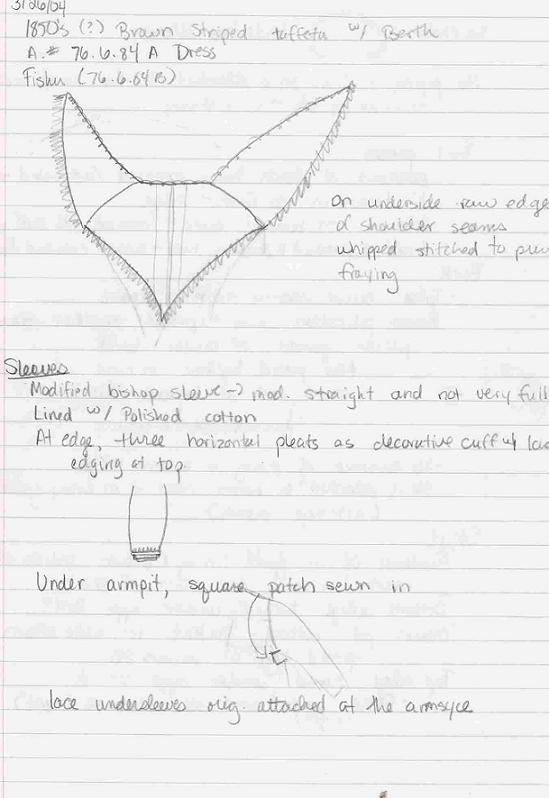 3/26/04
1850's (?) Brown Striped taffeta w/ Berth
A.# 76.6.84 A Dress
Fishu (76.6.64 B)
on underside raw edge
of shoulder seams
whipped stitched to prev
fraying
Sleeves
Modified bishop sleeve → mod. straight and not very full
Lined w/ Polished cotton
At edge, three horizontal pleats as decorative cuff w/ lac
edging at top
Under armpit, square patch sewn in
lace undersleeves orig. attached at the armsyce